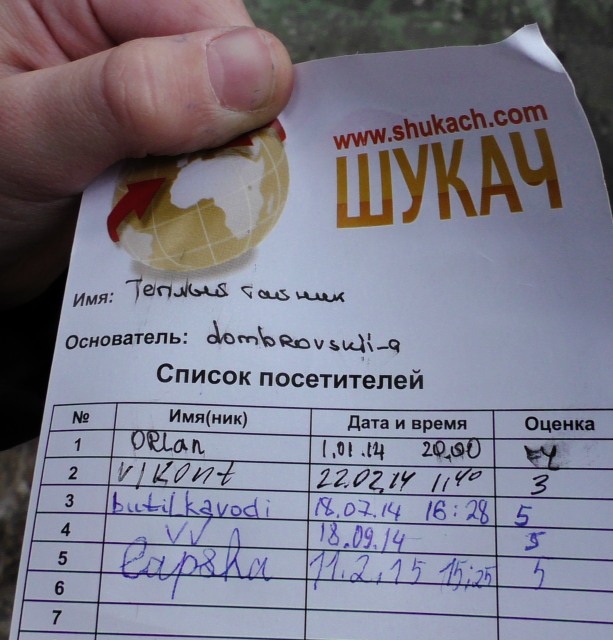 www.shukach.com
ШУКАЧ
Имя: Теплый тайник
Основатель: dombrovskii-a
Список посетителей
№ Имя(ник) Дата и время Оценка
1 ORlan 1.01.14 20,00 4
2 VIKOnt 22.02.14 11,40 3
3 butilkavodi 18.07.14 16:28 5
4 VV 18.09.14 5
5 Capsha 11.2.15 15:25 5
6
7